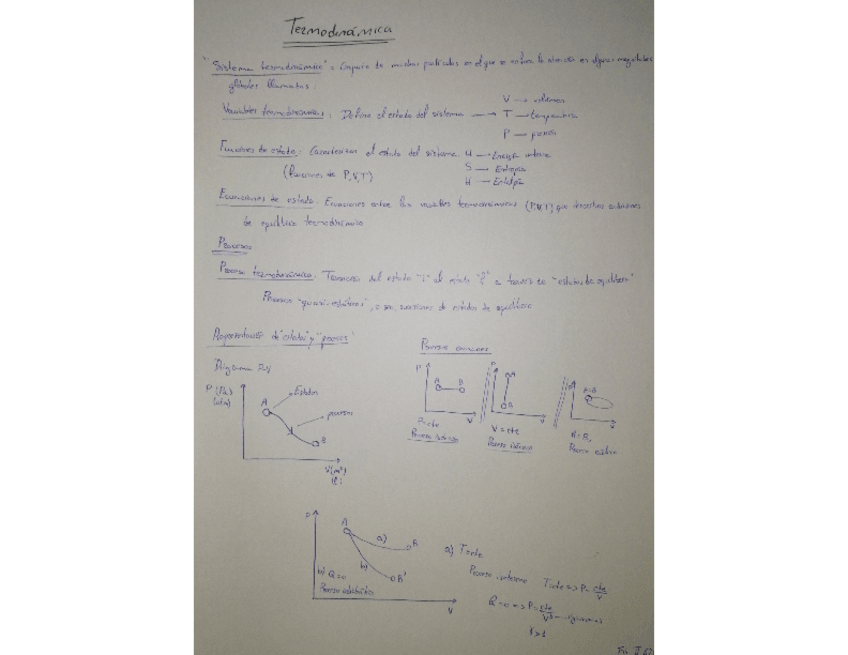 Termodinámica
"Sistema termodinámico": Conjunto de muchas partículas en el que se centra la atención en algunas magnitudes
globales llamadas
Variables termodinámicas: Define el estado del sistema → V → volumen
T → temperatura
P → presión
Funciones de estado: Caracterizan el estado del sistema U → Energía interna
(funciones de P,V,T) S → Entropía
H → Entalpía
Ecuaciones de estado: Ecuaciones entre las variables termodinámicas (P,V,T) que describen
de equilibrio termodinámico
Procesos
Proceso termodinámico. del estado "i" al estado "f" a través de "estados de equilibrio"
Procesos "quasi-estáticos", o sea, sucesiones de estados de equilibrio
Representación de "estados" y "procesos"
Diagrama P-V
P (Pa)
(atm)
A
Estados
procesos
B
V(m³)
(l)
P A B V
P=cte
Proceso isobárico
P A B V
V=cte
Proceso
A=B
Proceso
P A a) B
b) B'
b) Q=0
Proceso adiabático
V
a) T=cte
Proceso isotermo T=cte => P=cte/V
Q=0 => P=cte/V^γ
γ>1